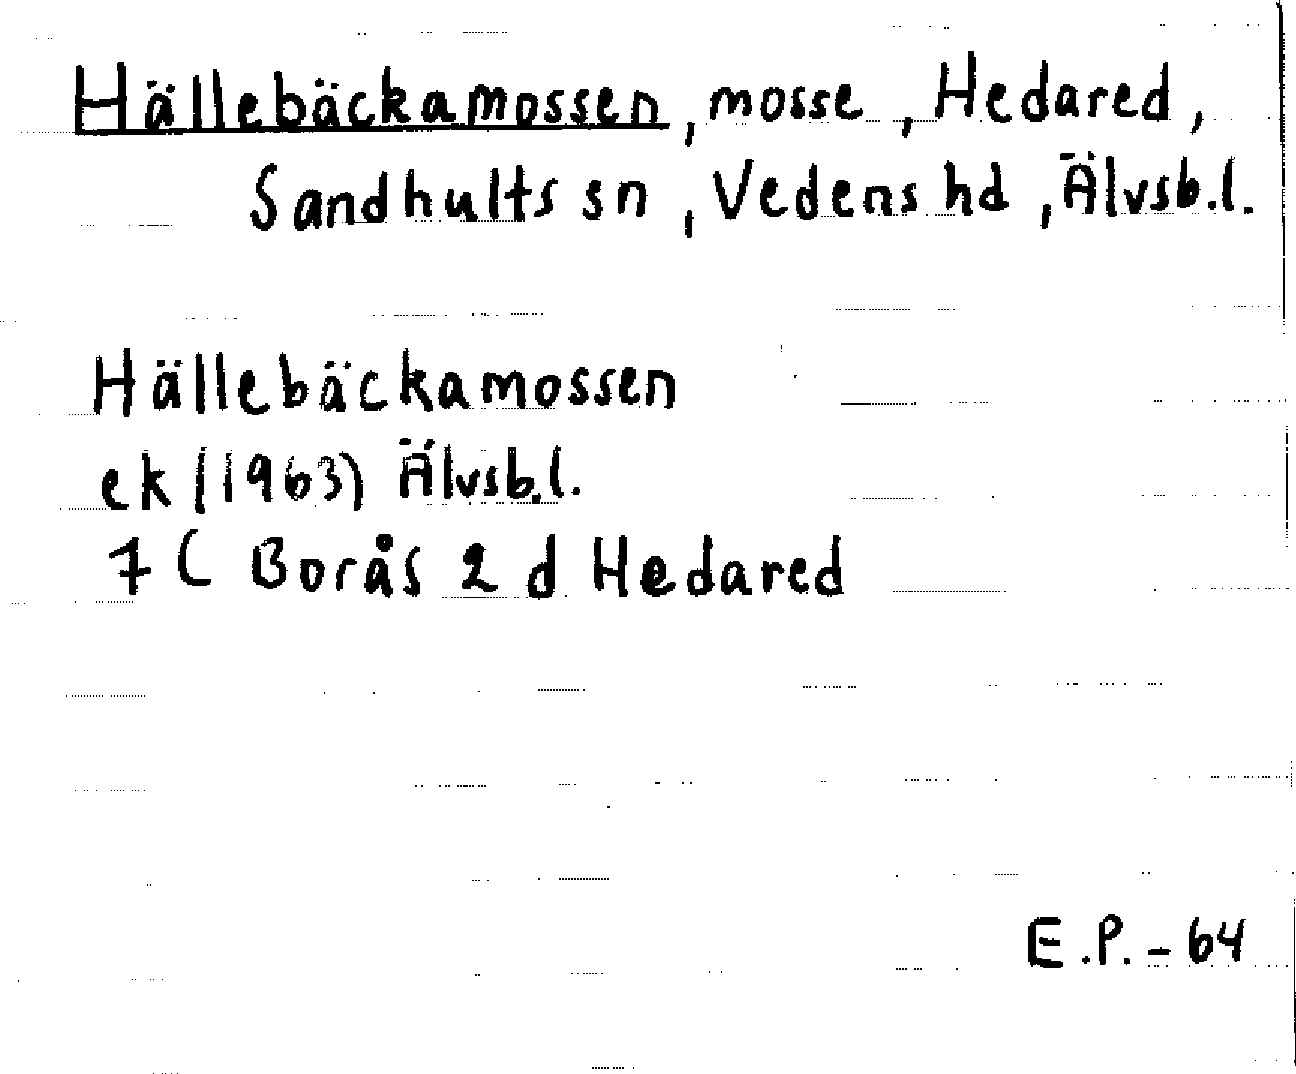 Hällebäckamossen, mosse, Hedared,
Sandhults sn, Vedens hd, Älvsb.l.
Hällebäckamossen
ek (1963) Älvsb.l.
7 C Borås 2 d Hedared
E.P. - 64